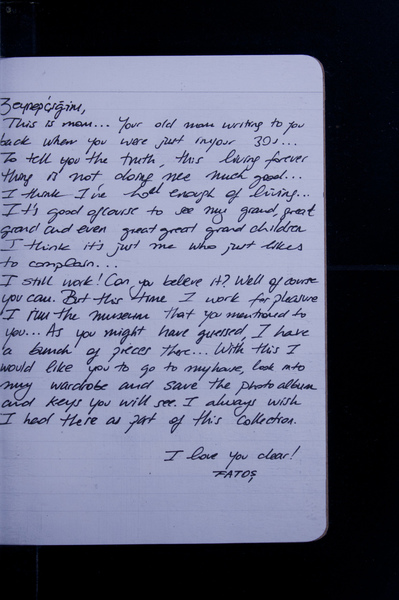 Zeynepçiğim,
This is mom... Your old mom writing to you
back when you were just in your 30s...
To tell you the truth, this living forever
thing is not doing me much good...
I think I've had enough of living...
It's good ofcourse to see my grand, great
grand and even great great grand children
I think it's just me who just likes
to complain...
I still work! Can you believe it? Well of course
you can. But this time I work for pleasure
I run the museum that you mentioned to
you... As you might have guessed, I have
a bunch of pieces there... With this I
would like you to go to my house, look into
my wardrobe and save the photo album
and keys you will see. I always wish
I had these as part of this collection.
I love you dear!
FATOŞ